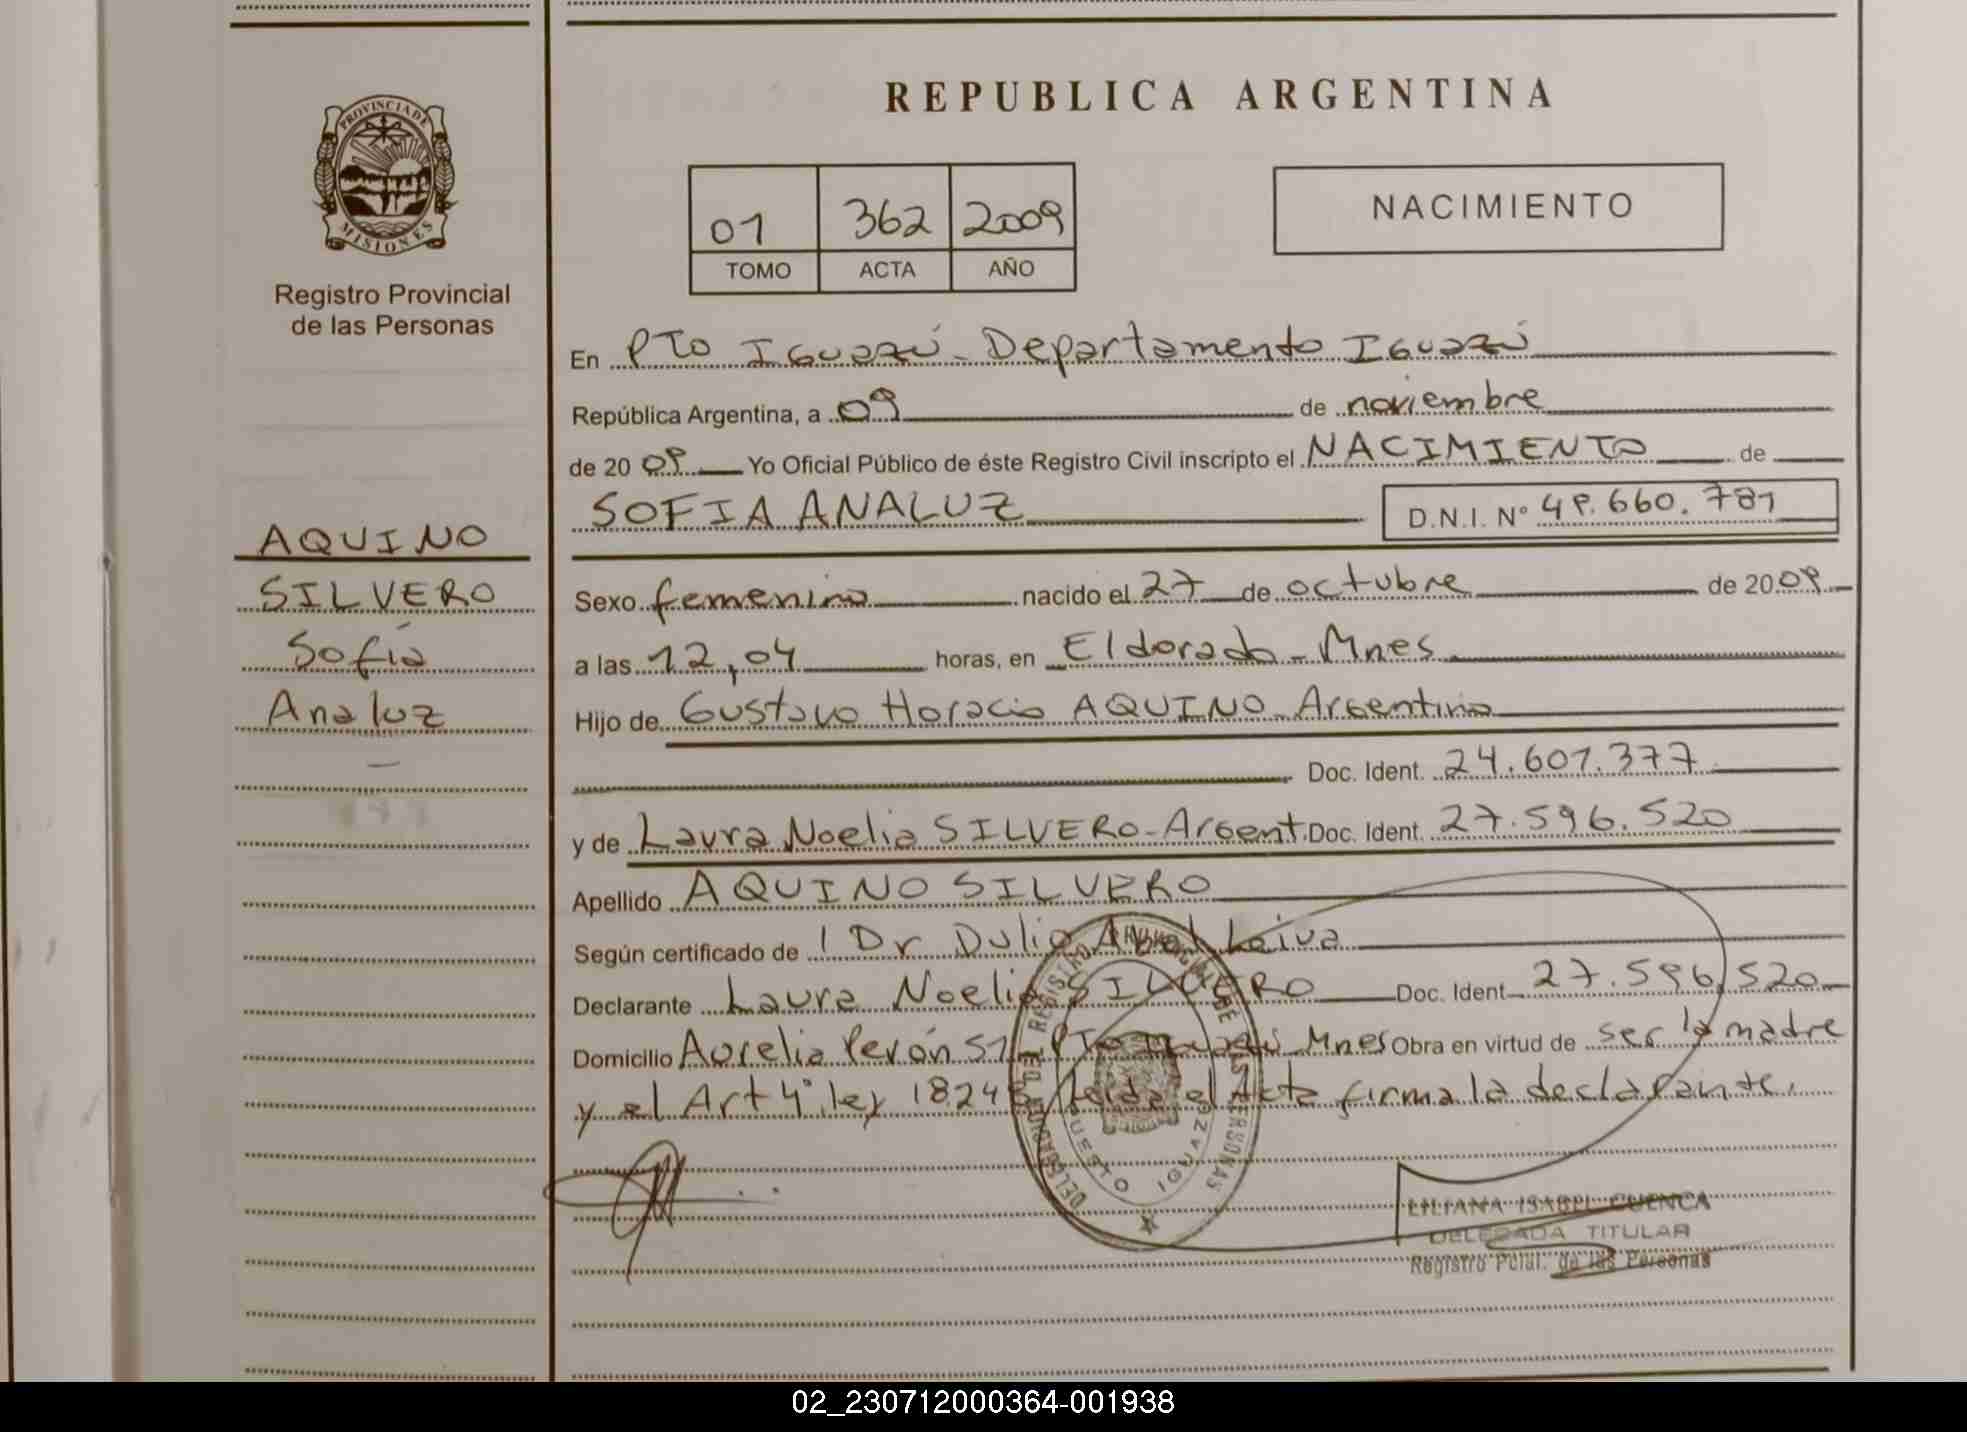 REPUBLICA ARGENTINA
PROVINCIA DE
MISIONES
Registro Provincial
de las Personas
01 362 2009
TOMO ACTA AÑO
NACIMIENTO
En PTO IGUAZÚ - Departamento IGUAZÚ
República Argentina, a 09 de noviembre
de 20 09 Yo Oficial Público de éste Registro Civil inscripto el NACIMIENTO de
SOFIA ANALUZ D.N.I. Nº 49.660.781
AQUINO
SILVERO
Sofia
Analuz
Sexo femenino nacido el 27 de octubre de 2009
a las 12,04 horas, en Eldorado - Mnes
Hijo de Gustavo Horacio AQUINO - Argentino
Doc. Ident. 24.601.377
y de Laura Noelia SILVERO - Argent. Doc. Ident. 27.596.520
Apellido AQUINO SILVERO
Según certificado de Dr Dulio Abel Leiva
Declarante Laura Noelia SILVERO Doc. Ident 27.596.520
Domicilio Aurelia Perón PTO Iguazú Mnes Obra en virtud de ser la madre
y el Art 4° ley 18248 Leida el Acta firma la declarante.
LILIANA ISABEL CUENCA
DELEGADA TITULAR
Registro Pcial. de las Personas
02_230712000364-001938